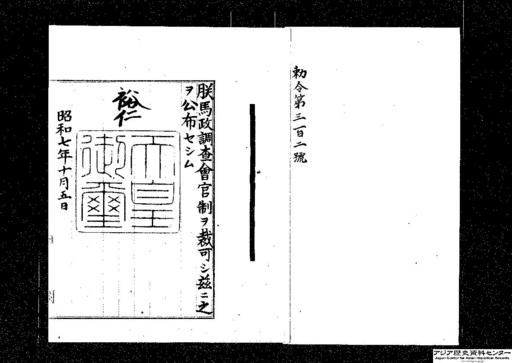 勅令第三百二號
朕馬政調査會官制ヲ裁可シ茲ニ之
ヲ公布セシム
裕仁
天皇
御璽
昭和七年十月五日
アジア歴史資料センター
Japan Center for Asian Historical Records